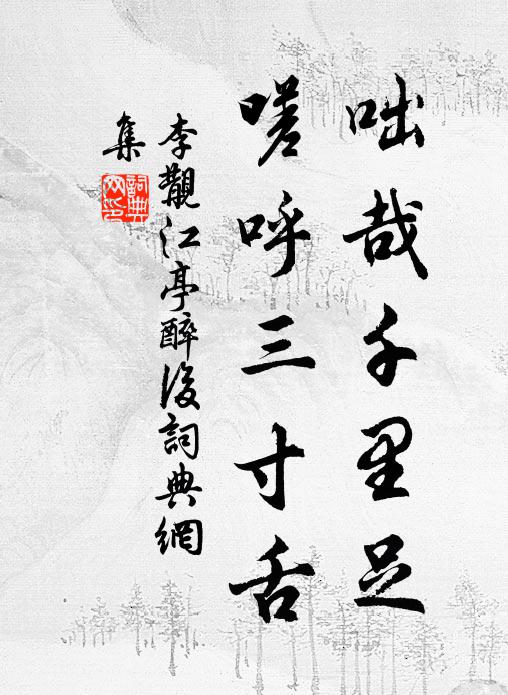 咄哉千里足
嗟呼三寸舌
李覯江亭醉後詞典網
集
詞典網印